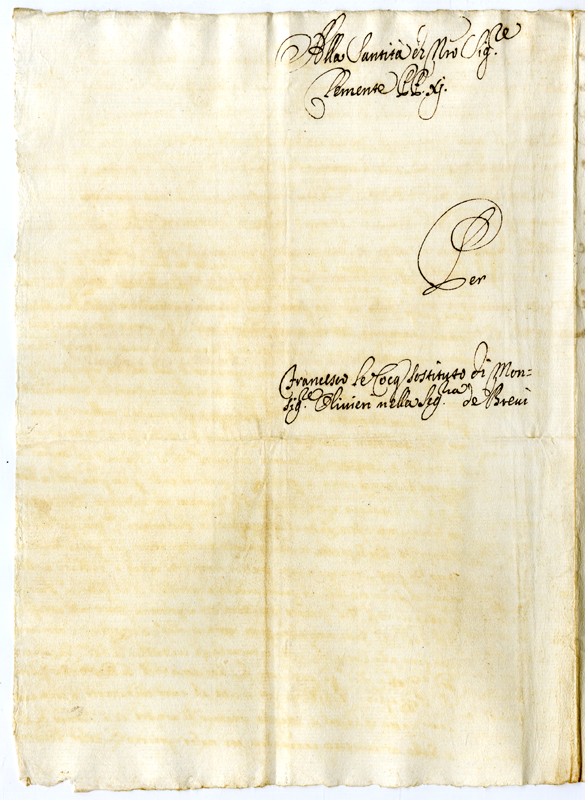 Alla Santità di Nro Sig.re
Clemente PP. xj.
Per
Francesco Le Cocq sostituto di Mon=
sig.re Olivieri nella Seg.ria de Brevi